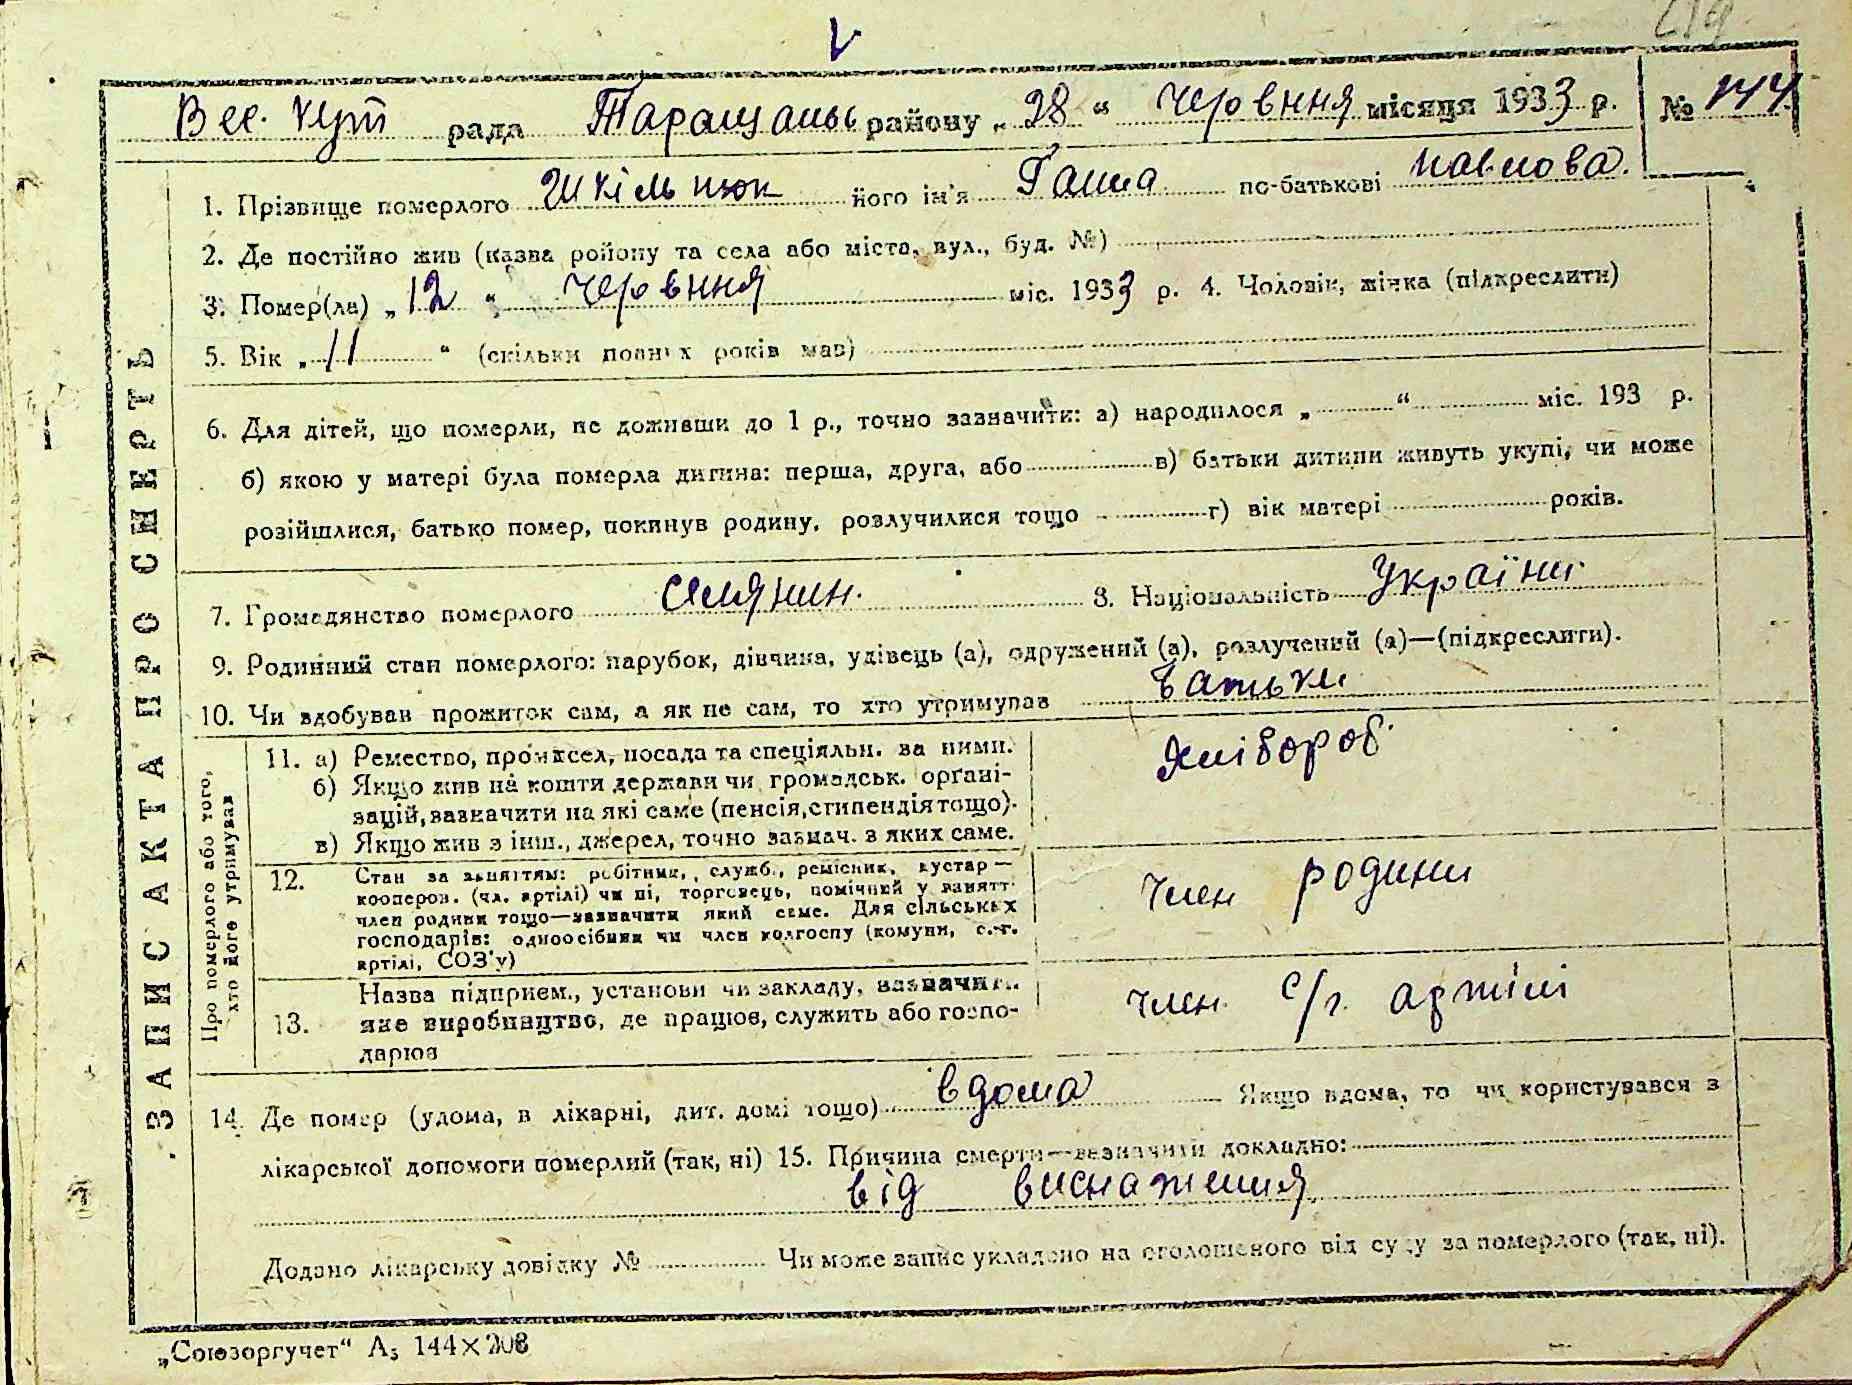 219
Вес. Кут рада Таращанськ району „28“ червння місяця 1933 р. № 144
1. Прізвище померлого Шкільнюк його ім'я Ганна по-батькові Павлова.
2. Де постійно жив (назва району та села або міста, вул., буд. №)
3. Помер(ла) „12“ червння міс. 1933 р. 4. Чоловік, жінка (підкреслити)
5. Вік „11“ (скільки повних років мав)
6. Для дітей, що померли, не доживши до 1 р., точно зазначити: а) народилося „ “ міс. 193 р.
б) якою у матері була померла дитина: перша, друга, або в) батьки дитини живуть укупі, чи може
розійшлися, батько помер, покинув родину, розлучилися тощо г) вік матері років.
7. Громадянство померлого селянин. 8. Національність Україн.
9. Родинний стан померлого: парубок, дівчина, удівець (а), одружений (а), розлучений (а)—(підкреслити).
10. Чи здобував прожиток сам, а як не сам, то хто утримував батьки
ЗАПИС АКТА ПРО СМЕРТЬ
Про померлого або того, хто його утримував
11. а) Ремество, промисел, посада та спеціяльн. за ними.
б) Якщо жив на кошти держави чи громадськ. органі-
зацій, зазначити на які саме (пенсія, стипендія тощо).
в) Якщо жив з інш., джерел, точно зазнач. з яких саме.
Хлібороб.
12. Стан за заняттям: робітник, служб., ремісник, кустар—
кооперов. (чл. артілі) чи ні, торговець, помічний у занятт.
член родини тощо—зазначити який саме. Для сільських
господарів: одноосібник чи член колгоспу (комуни, с.-г.
артілі, СОЗ'у)
член родини
13. Назва підприєм., установи чи закладу, зазначити
яке виробництво, де працює, служить або госпо-
дарює
член с/г. артілі
14. Де помер (удома, в лікарні, дит. домі тощо) вдома Якщо вдома, то чи користувався з
лікарської допомоги померлий (так, ні) 15. Причина смерти—зазначити докладно:
від виснаження
Додано лікарську довідку № Чи може запис укладено на оголошеного від суду за померлого (так, ні).
„Союзоргучет“ А₅ 144×208